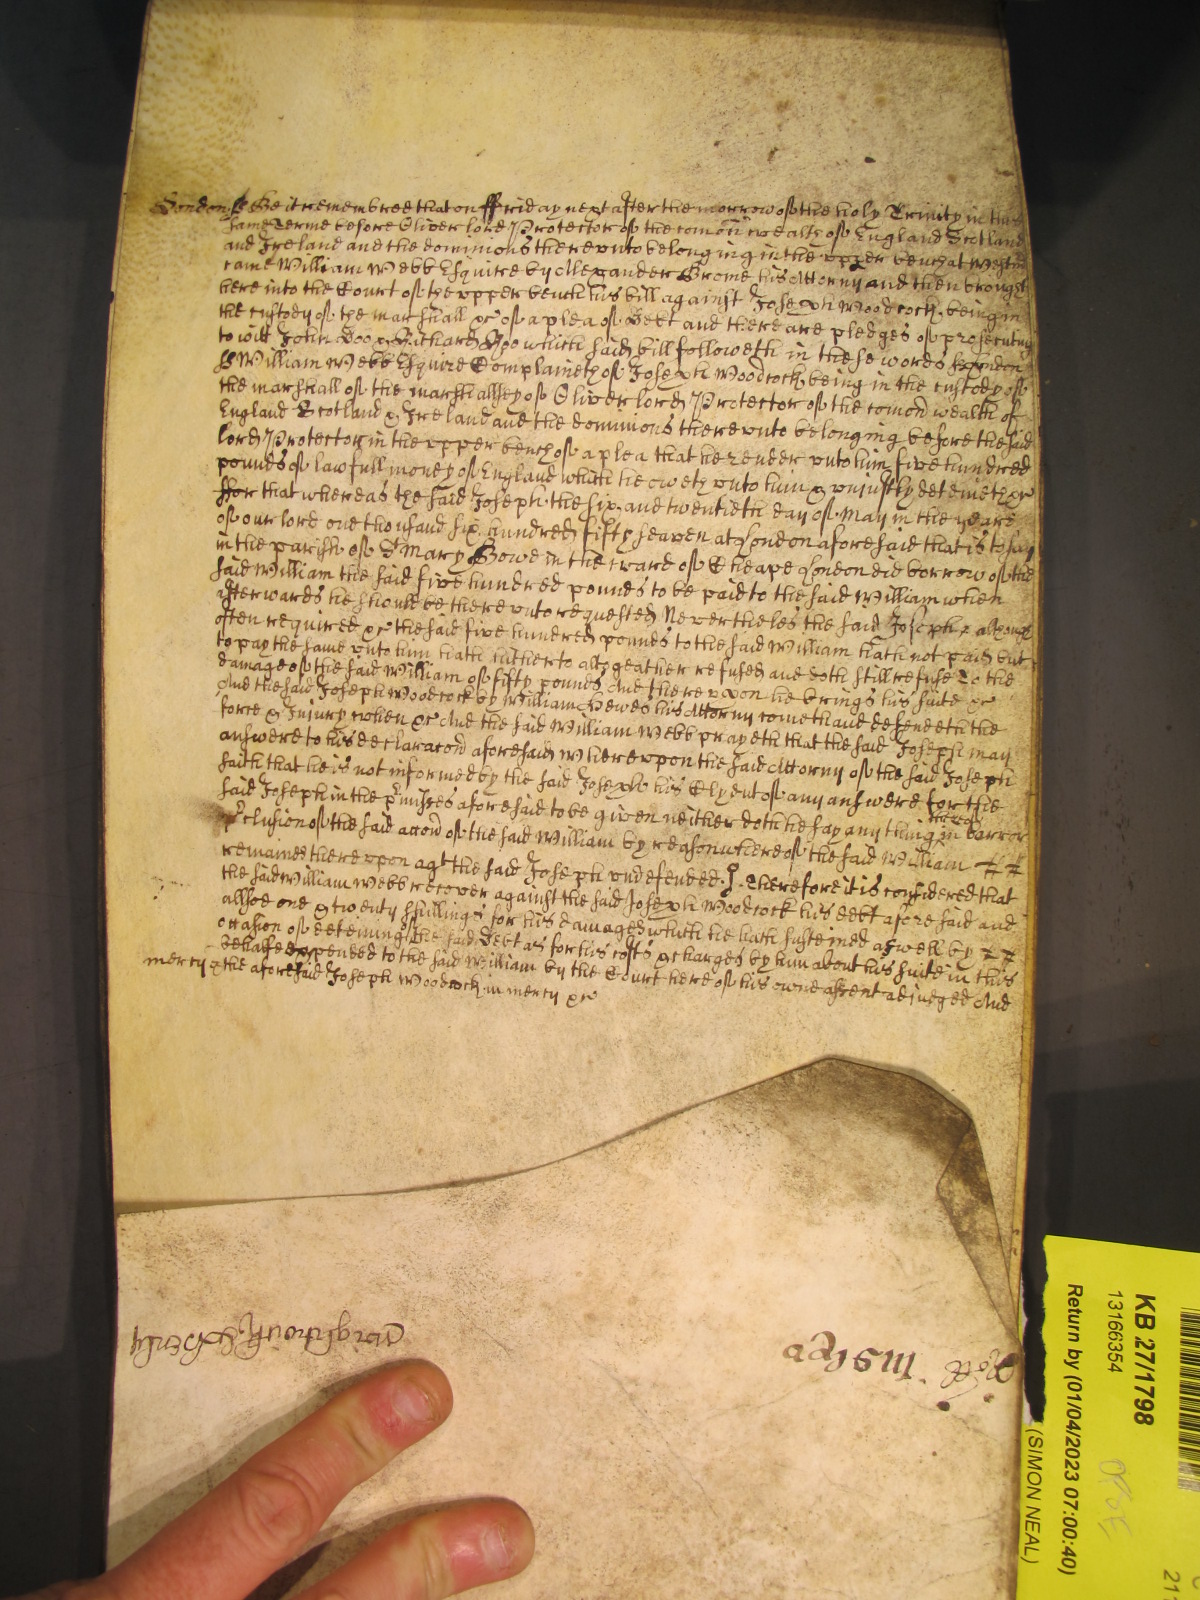 London ss Be it remembred that on ffriday next after the morrow of the holy Trinity in this
same Terme before Oliver lord Protector of the comon wealth of England Scotland
and Ireland and the dominions thereunto belonging in the upper bench at Westmr
came William Webb Esquire by Allexander Brome his Attorny and then brought
here into the Court of the upper bench his bill against Joseph Woodcock being in
the custody of the marshall &c of a plea of Debt and there are pledges of prosecuting
to witt John Doo & Richard Roo which said bill followeth in these words London
ss William Webb Esquire Complaineth of Joseph Woodcock being in the custody of
the marshall of the marshallsey of Oliver lord Protector of the comon wealth of
England Scotland & Ireland and the dominions thereunto belonging before the said
lord Protector in the upper bench of a plea that he render unto him five hundred
pounds of lawfull money of England which he oweth unto him & unjustly deteineth &c
ffor that whereas the said Joseph the six and twentieth day of May in the yeare
of our lord one thousand six hundred fifty seaven at London aforesaid that is to say
in the parish of St Mary Bowe in the ward of Cheape London did borrow of the
said William the said five hundred pounds to be paid to the said William when
afterwards he should be thereunto requested Nevertheles the said Joseph although
often required &c the said five hundred pounds to the said William hath not paid but
to pay the same unto him hath hitherto altogeather refused and doth still refuse To the
damage of the said William of fifty pounds And thereupon he brings his suite &c
And the said Joseph Woodcock by William Hewes his Attorny cometh and defendeth the
force & Injury when &c And the said William Webb prayeth that the said Joseph may
answere to his declaracon aforesaid Whereupon the said Attorny of the said Joseph
saith that he is not informed by the said Joseph his Clyent of any answere for the
said Joseph in the pmisses aforesaid to be given neither doth he say any thing in barr or
pclusion of the said accon of the said William by reason whereof the said William
remaines thereupon agt the said Joseph undefended. Therefore it is considered that
the said William Webb recover against the said Joseph Woodcock his debt aforesaid and
allsoe one & twenty shillings for his damages which he hath susteined aswell by
occasion of deteining the said Debt as for his costs & charges by him about his suite in this
behalfe expended to the said William by the Court here of his owne assent adjudged And
mercy & the aforesaid Joseph Woodcock in mercy &c
KB 27/1798
13166354
Return by (01/04/2023 07:00:40)
(SIMON NEAL)